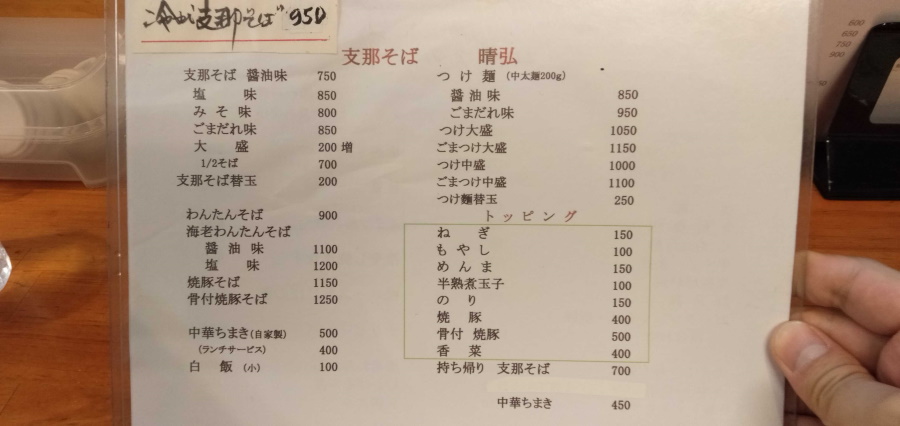 冷がけ支那そば 950
支那そば 晴弘
支那そば 醤油味 750
塩 味 850
みそ味 800
ごまだれ味 850
大 盛 200 増
1/2そば 700
支那そば替玉 200
わんたんそば 900
海老わんたんそば
醤油味 1100
塩 味 1200
焼豚そば 1150
骨付焼豚そば 1250
中華ちまき(自家製) 500
(ランチサービス) 400
白 飯 (小) 100
つ け 麺 (中太麺200g)
醤油味 850
ごまだれ味 950
つけ大盛 1050
ごまつけ大盛 1150
つけ中盛 1000
ごまつけ中盛 1100
つけ麺替玉 250
トッピング
ね ぎ 150
もやし 100
めんま 150
半熟煮玉子 100
の り 150
焼 豚 400
骨付 焼豚 500
香 菜 400
持ち帰り 支那そば 700
中華ちまき 450
600
700
900